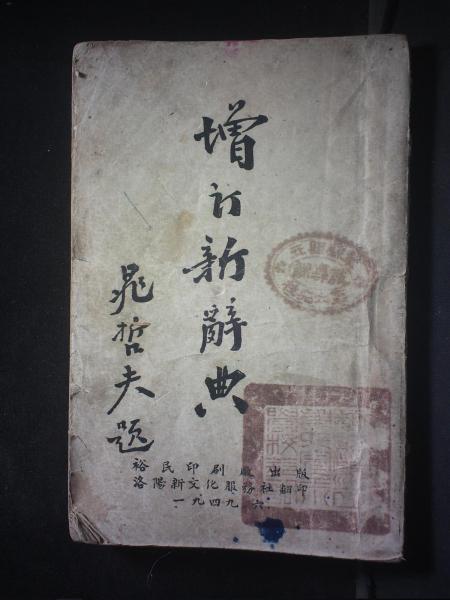 增订新辭典
晁哲夫题
裕民印刷廠出版
洛陽新文化服務社翻印
一九四九 六